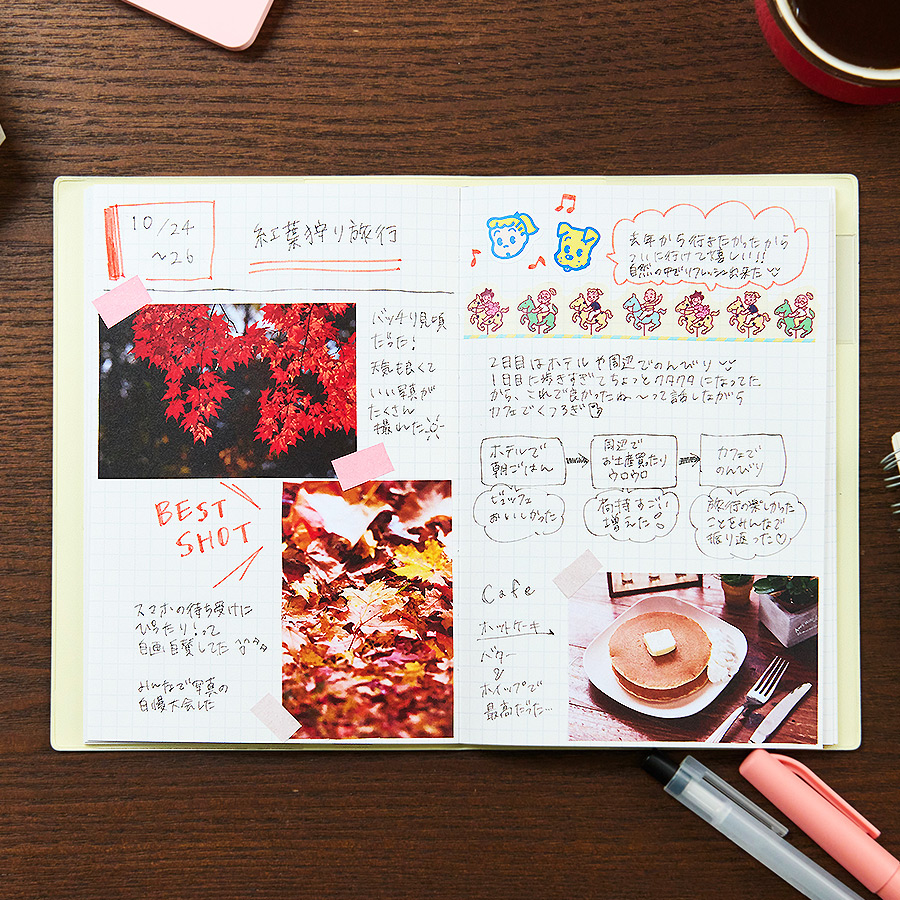 10/24
~26
紅葉狩り旅行
バッチリ見頃
だった!
天気も良くて
いい写真が
たくさん
撮れた
BEST
SHOT
スマホの待ち受けに
ぴったり!って
自画自賛してた
みんなで写真の
自慢大会した
去年から行きたかったから
ついに行けて嬉しい!!
自然の中でリフレッシュ出来た
2日目はホテルや周辺でのんびり
1日目に歩きすぎてちょっとクタクタになってた
から、これで良かったね〜って話しながら
カフェでくつろぎ
ホテルで
朝ごはん
周辺で
お土産買ったり
ウロウロ
カフェで
のんびり
ビュッフェ
おいしかった
荷物すごい
増えた!
旅行の楽しかった
ことをみんなで
振り返った♡
Cafe
ホットケーキ
バター
&
ホイップで
最高だった…